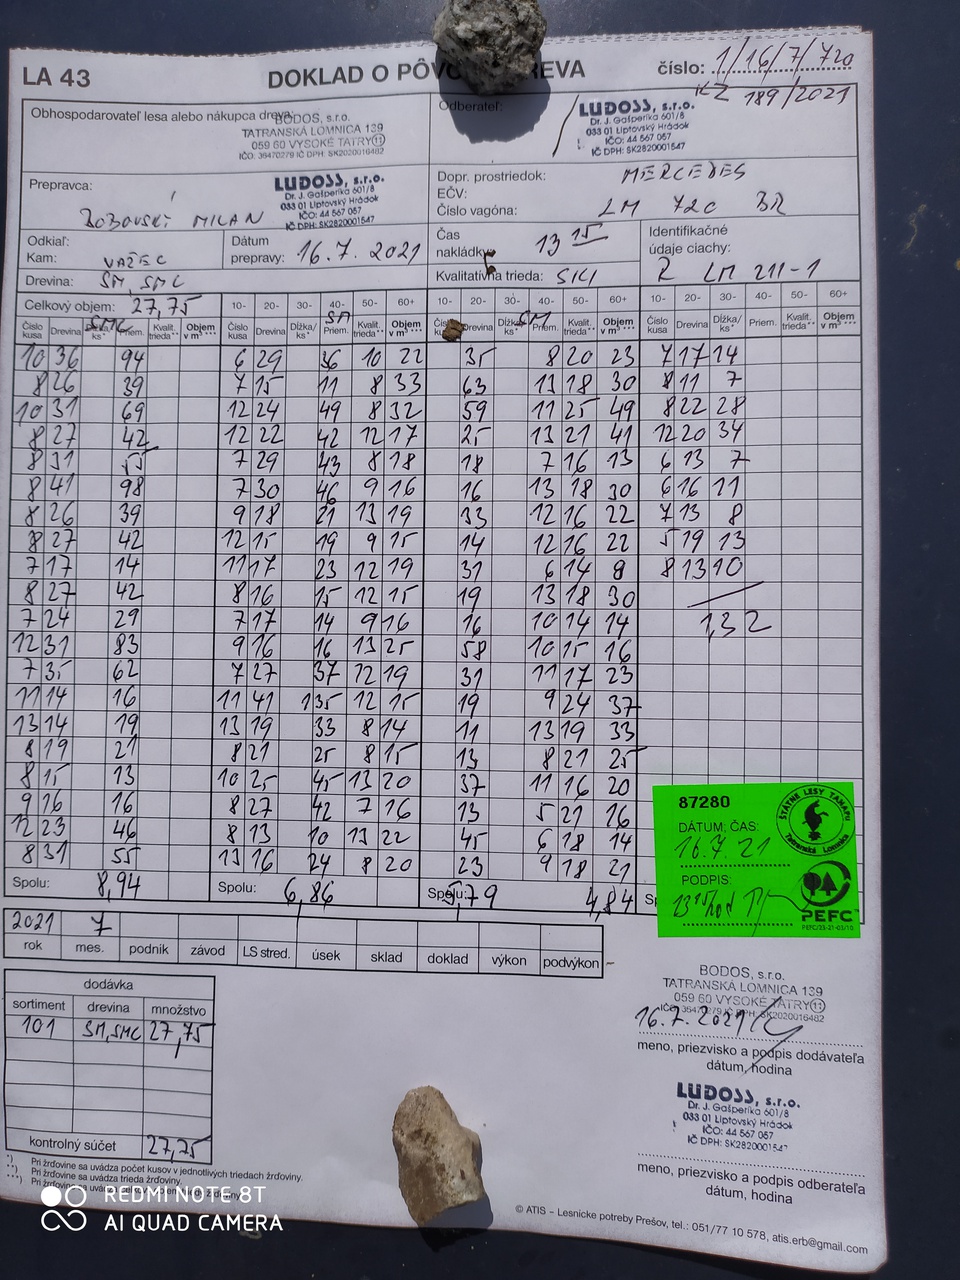 LA 43 DOKLAD O PÔV REVA číslo: 1/16/7/720
KZ 189/2021
Obhospodarovateľ lesa alebo nákupca dreva:
BODOS, s.r.o.
TATRANSKÁ LOMNICA 139
059 60 VYSOKÉ TATRY 11
IČO: 36470279 IČ DPH: SK2020016482
Odberateľ:
LUDOSS, s.r.o.
Dr. J. Gašperíka 601/8
033 01 Liptovský Hrádok
IČO: 44 567 057
IČ DPH: SK2820001547
Prepravca:
BOBOVSKÝ MILAN
LUDOSS, s.r.o.
Dr. J. Gašperíka 601/8
033 01 Liptovský Hrádok
IČO: 44 567 057
IČ DPH: SK2820001547
Dopr. prostriedok: MERCEDES
EČV:
Číslo vagóna: LM 720 BR
Odkiaľ:
Kam: VAŽEC
Dátum
prepravy: 16.7.2021
Čas
nakládky: 13 15
Identifikačné
údaje ciachy:
Z LM 211-1
Drevina: SM, SMC
Kvalitatívna trieda:
Celkový objem: 27,75
10- 20- 30- 40- 50- 60+ 10- 20- 30- 40- 50- 60+ 10- 20- 30- 40- 50- 60+
SMC SM SM
Číslo kusa Drevina Dĺžka/ks* Priem. Kvalit. trieda** Objem v m³ *** Číslo kusa Drevina Dĺžka/ks* Priem. Kvalit. trieda** Objem v m³ *** Drevina Dĺžka/ks* Priem. Kvalit. trieda** Objem v m³ *** Číslo kusa Drevina Dĺžka/ks* Priem. Kvalit. trieda** Objem v m³ ***
10 36 94 6 29 36 10 22 35 8 20 23 7 17 14
8 26 39 7 15 11 8 33 63 13 18 30 8 11 7
10 31 69 12 24 49 8 32 59 11 25 49 8 22 28
8 27 42 12 22 42 12 17 25 13 21 41 12 20 34
8 31 55 7 29 43 8 18 18 7 16 13 6 13 7
8 41 98 7 30 46 9 16 16 13 18 30 6 16 11
8 26 39 9 18 21 13 19 33 12 16 22 7 13 8
8 27 42 12 15 19 9 15 14 12 16 22 5 19 13
7 17 14 11 17 23 12 19 31 6 14 8 8 13 10
8 27 42 8 16 15 12 15 19 13 18 30
7 24 29 7 17 14 9 16 16 10 14 14 1,32
12 31 83 9 16 16 13 25 58 10 15 16
7 35 62 7 27 37 12 19 31 11 17 23
11 14 16 11 41 135 12 15 19 9 24 37
13 14 19 13 19 33 8 14 11 13 19 33
8 19 21 8 21 25 8 15 13 8 21 25
8 15 13 10 25 45 13 20 37 11 16 20
9 16 16 8 27 42 7 16 13 5 21 16
12 23 46 8 13 10 13 22 45 6 18 14
8 31 55 13 16 24 8 20 23 9 18 21
Spolu: 8,94 Spolu: 6,86 Spolu: 5,79 4,84
87280
DÁTUM; ČAS:
16.7.21
PODPIS:
13 15 hod
ŠTÁTNE LESY TANAPU
Tatranská Lomnica
PEFC
PEFC/25-21-03/10
2021 7
rok mes. podnik závod LS stred. úsek sklad doklad výkon podvýkon
dodávka
sortiment drevina množstvo
101 SM,SMC 27,75
kontrolný súčet 27,75
BODOS, s.r.o.
TATRANSKÁ LOMNICA 139
059 60 VYSOKÉ TATRY 11
16.7.2021
meno, priezvisko a podpis dodávateľa
dátum, hodina
LUDOSS, s.r.o.
Dr. J. Gašperíka 601/8
033 01 Liptovský Hrádok
IČO: 44 567 057
IČ DPH: SK2820001547
meno, priezvisko a podpis odberateľa
dátum, hodina
*) Pri žrďovine sa uvádza počet kusov v jednotlivých triedach žrďoviny.
**) Pri žrďovine sa uvádza trieda žrďoviny.
***) Pri žrďovine sa
© ATIS – Lesnícke potreby Prešov, tel.: 051/77 10 578, atis.erb@gmail.com
REDMI NOTE 8T
AI QUAD CAMERA